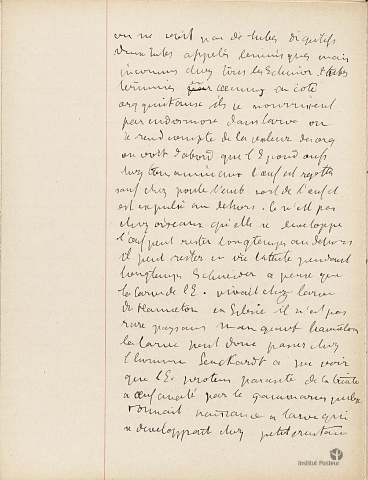 on ne voit pas de tubes digestifs
deux tubes appelés lemnisques mais
inconnus chez tous les
terminés en coecum
ils se nourrissent
par endosmose dans larve on
se rend compte de la valeur des org
on voit d'abord que l'E pond œufs
chez animaux l'œuf est rejeté
sauf chez poule l'emb sort de l'œuf et
est expulsé au dehors. Ce n'est pas
chez oiseaux qu'elle se développe
l'œuf peut rester longtemps au dehors
il peut rester en vie latente pendant
longtemps Schneider a pensé que
la larve de l'E. vivait chez larve
de Hanneton en il n'est pas
rare paysans mangeant hanneton
la larve peut donc passer chez
l'homme Leuckardt a pu voir
que l'Ec proteus parasite de la truite
a œuf avalé par le gammarus pulex
donnait naissance a larve qui
se developpait chez petit crustacé
Institut Pasteur